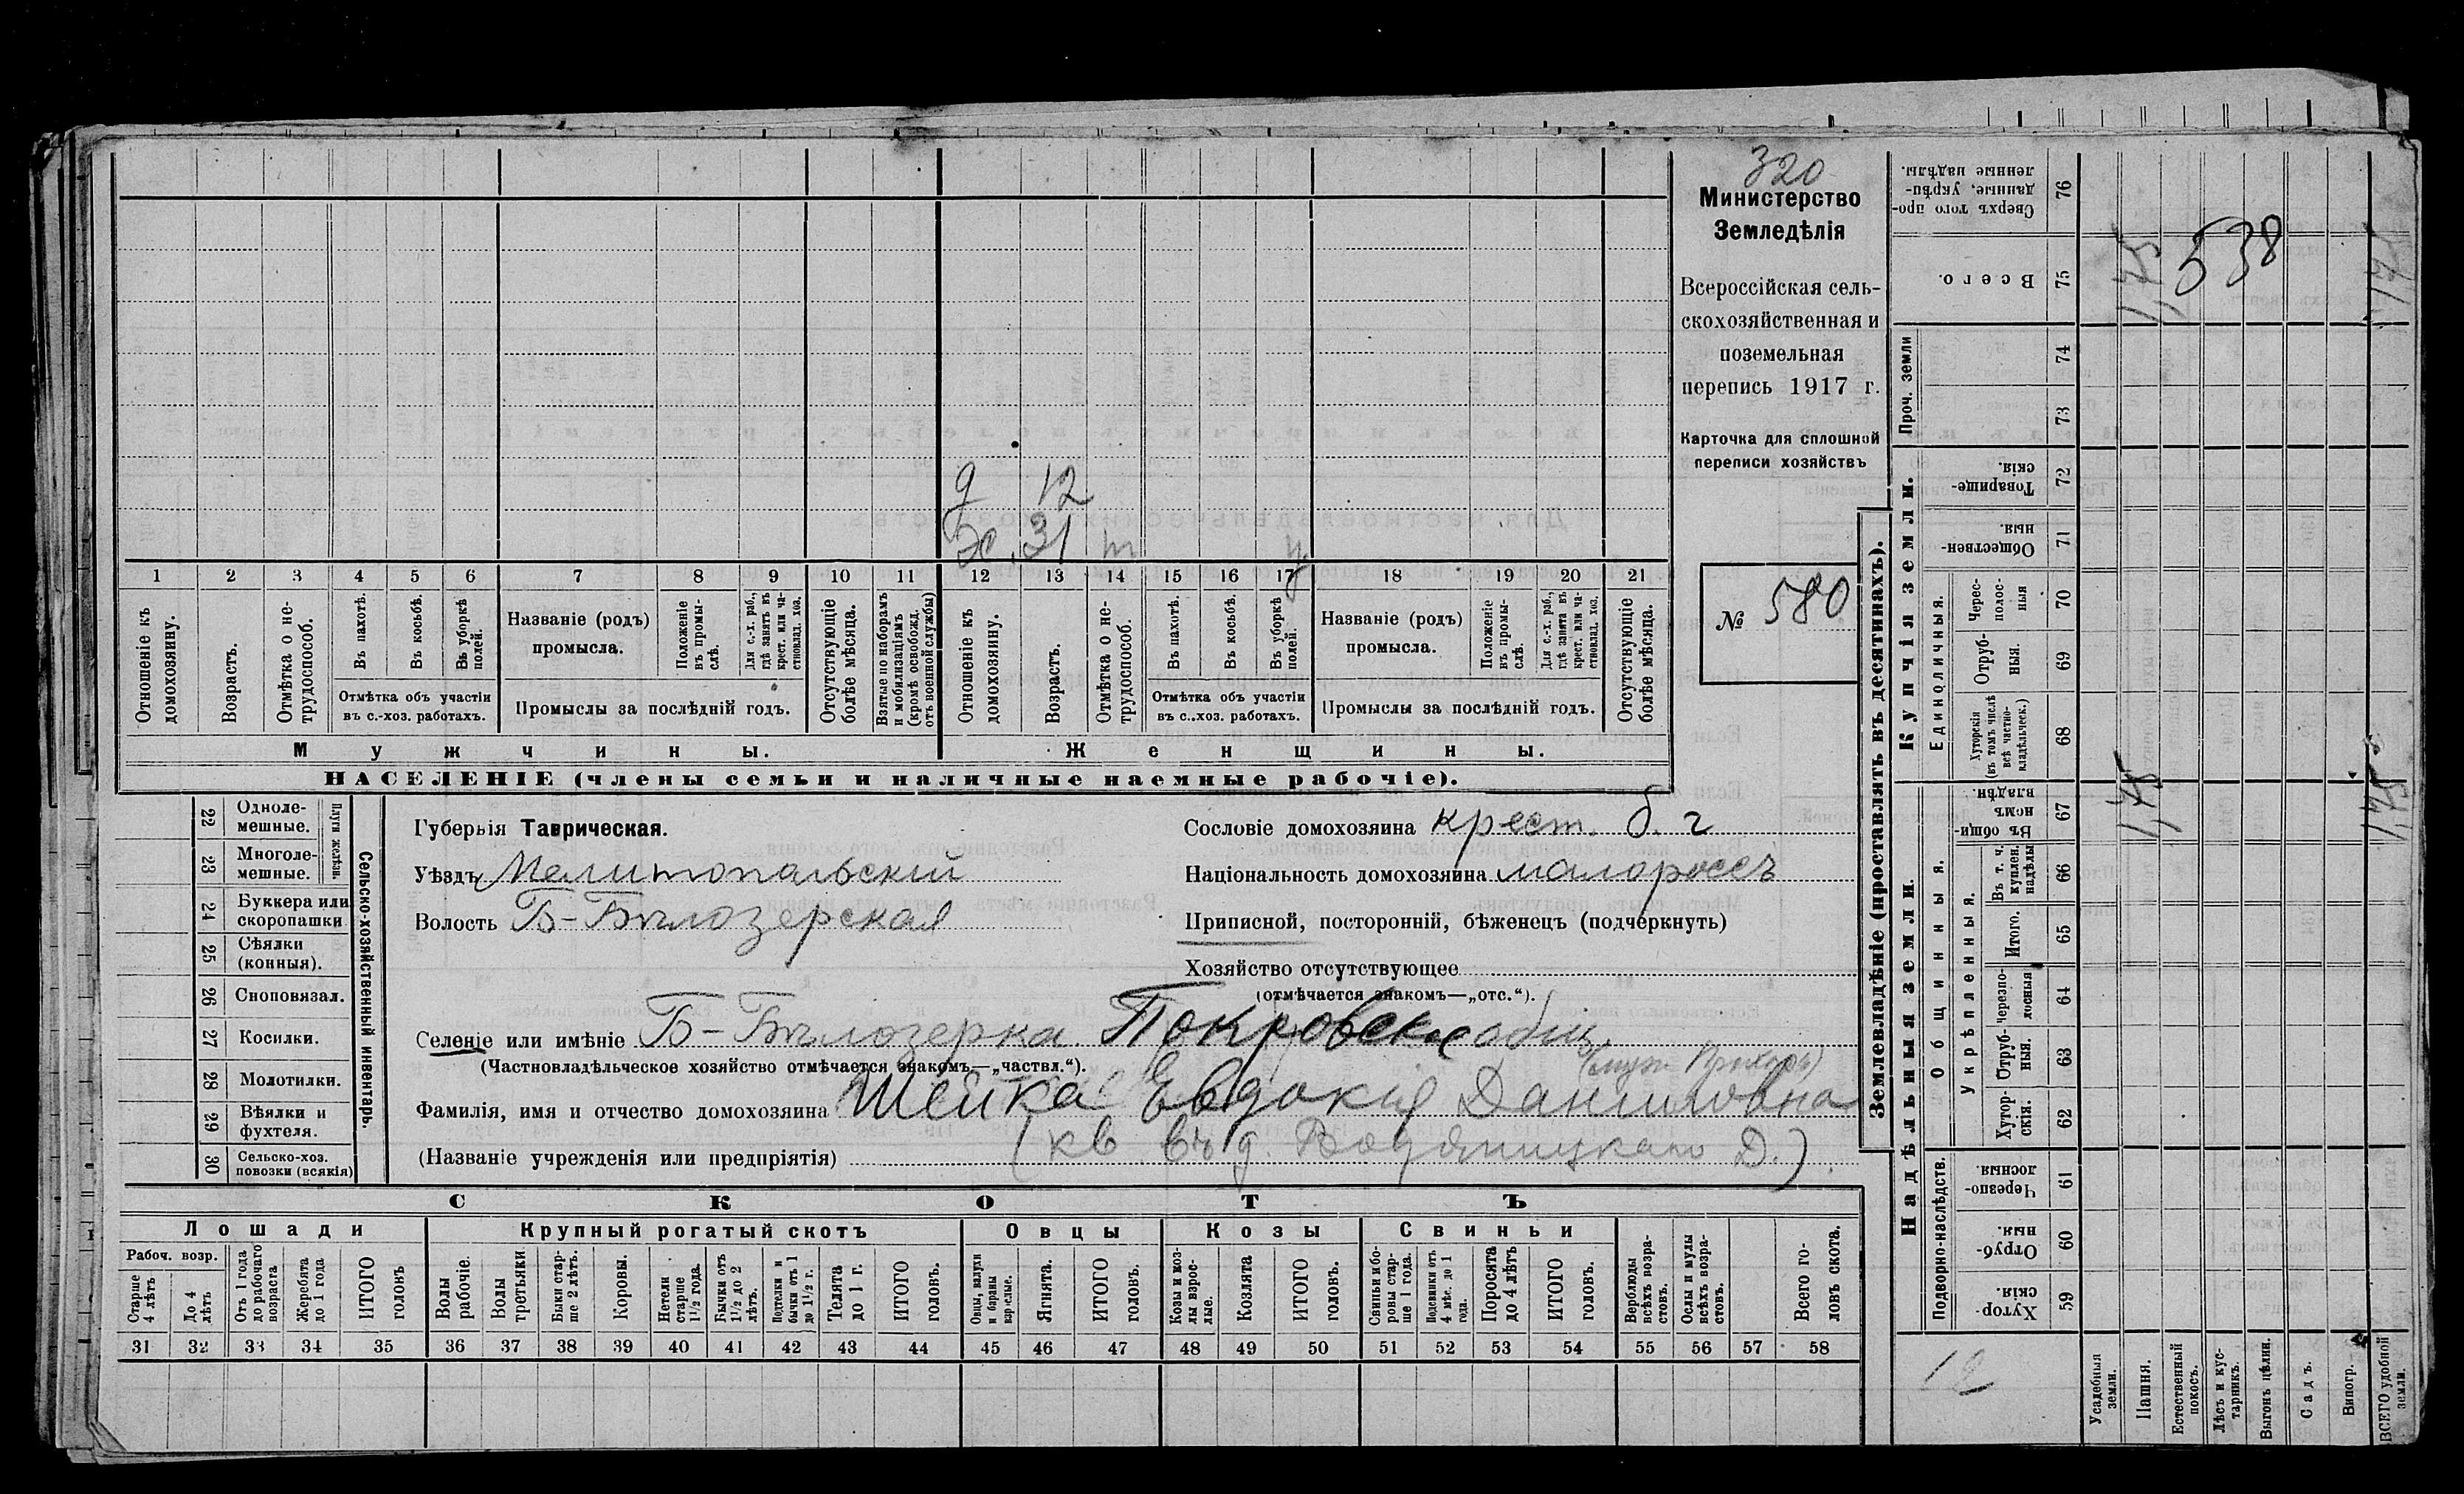 320
Министерство
Земледѣлія
Всероссійская сель-
скохозяйственная и
поземельная
перепись 1917 г.
Карточка для сплошной
переписи хозяйствъ
№ 580
д 12
ж. 31 т у
1 2 3 4 5 6 7 8 9 10 11 12 13 14 15 16 17 18 19 20 21
Отношеніе къ домохозяину.
Возрастъ.
Отмѣтка о не-трудоспособ.
Въ пахотѣ.
Въ косьбѣ.
Въ уборкѣ полей.
Отмѣтка объ участіи
въ с.-хоз. работахъ.
Названіе (родъ)
промысла.
Положеніе въ промы-слѣ.
Для с.-х. раб., гдѣ занятъ въ крест. или ча-стновлад. хоз.
Промыслы за послѣдній годъ.
Отсутствующіе болѣе мѣсяца.
Взятые по наборамъ и мобилизаціямъ (кромѣ освобожд. отъ военной службы)
Отношеніе къ домохозяину.
Возрастъ.
Отмѣтка о не-трудоспособ.
Въ пахотѣ.
Въ косьбѣ.
Въ уборкѣ полей.
Отмѣтка объ участіи
въ с.-хоз. работахъ.
Названіе (родъ)
промысла.
Положеніе въ промы-слѣ.
Для с.-х. раб., гдѣ занята въ крест. или ча-стновлад. хоз.
Промыслы за послѣдній годъ.
Отсутствующіе болѣе мѣсяца.
Мужчины.
Женщины.
НАСЕЛЕНІЕ (члены семьи и наличные наемные рабочіе).
22 Одноле-мешные.
23 Многоле-мешные.
Плуги желѣзн.
24 Буккера или скоропашки
25 Сѣялки (конныя).
26 Сноповязал.
27 Косилки.
28 Молотилки.
29 Вѣялки и фухтеля.
30 Сельско-хоз. повозки (всякія)
Сельско-хозяйственный инвентарь.
Губернія Таврическая.
Уѣздъ Мелитопальскій
Волость Б-Бѣлозерская
Сословіе домохозяина крест. б. г
Національность домохозяина малороссъ
Приписной, посторонній, бѣженецъ (подчеркнуть)
Хозяйство отсутствующее
(отмѣчается знакомъ—„отс.“).
Селеніе или имѣніе Б-Бѣлозерка Покровское общ.
(Частновладѣльческое хозяйство отмѣчается знакомъ—„частвл.“).
Фамилія, имя и отчество домохозяина Шейка Евдокія Даниловна
(Названіе учрежденія или предпріятія) (кв. въ д. Водяницкаго Д.)
СКОТЪ
Лошади
Крупный рогатый скотъ
Овцы
Козы
Свиньи
Рабоч. возр.
Старше 4 лѣтъ
До 4 лѣтъ
Отъ 1 года до рабочаго возраста
Жеребята до 1 года
ИТОГО головъ
Волы рабочіе.
Волы третьяки
Быки стар-ше 2 лѣтъ.
Коровы.
Нетели старше 1½ года.
Бычки отъ 1½ до 2 лѣтъ.
Подтелки и бычки отъ 1 до 1½ г.
Телята до 1 г.
ИТОГО головъ.
Овцы, валухи и бараны взрослые.
Ягнята.
ИТОГО головъ.
Козы и коз-лы взрос-лые.
Козлята
ИТОГО головъ.
Свиньи и бо-ровы стар-ше 1 года.
Подсвинки отъ 4 мѣс. до 1 года.
Поросята до 4 лѣтъ
ИТОГО головъ.
Верблюды всѣхъ возра-стовъ.
Ослы и мулы всѣхъ возра-стовъ.
Всего го-ловъ скота.
31 32 33 34 35 36 37 38 39 40 41 42 43 44 45 46 47 48 49 50 51 52 53 54 55 56 57 58
Землевладѣніе (проставлять въ десятинахъ).
Сверхъ того про-данные, укрѣп-ленные надѣлы. 76
Всего. 75 1,75 538 1,75
Проч. земли 74
73
Купчія земли.
Товарище-скія. 72
Обществен-ныя. 71
Единоличныя.
Черес-полос-ныя 70
Отруб-ныя. 69
Хуторскія (въ томъ числѣ всѣ частно-владѣльческ.) 68
Надѣльныя земли.
Общинныя.
Въ общин-номъ владѣн. 67 1,75 1,75
Укрѣпленныя.
Въ т. ч. куплен. надѣлы 66
Итого. 65
Черезпо-лосныя 64
Отруб-ныя. 63
Хутор-скія. 62
Подворно-наслѣдств.
Черезпо-лосныя. 61
Отруб-ныя. 60
Хутор-скія. 59
12
Усадебныя земли.
Пашня.
Естественный покосъ.
Лѣсъ и кус-тарникъ.
Выгонъ цѣлин.
Садъ.
Виногр.
ВСЕГО удобной земли.